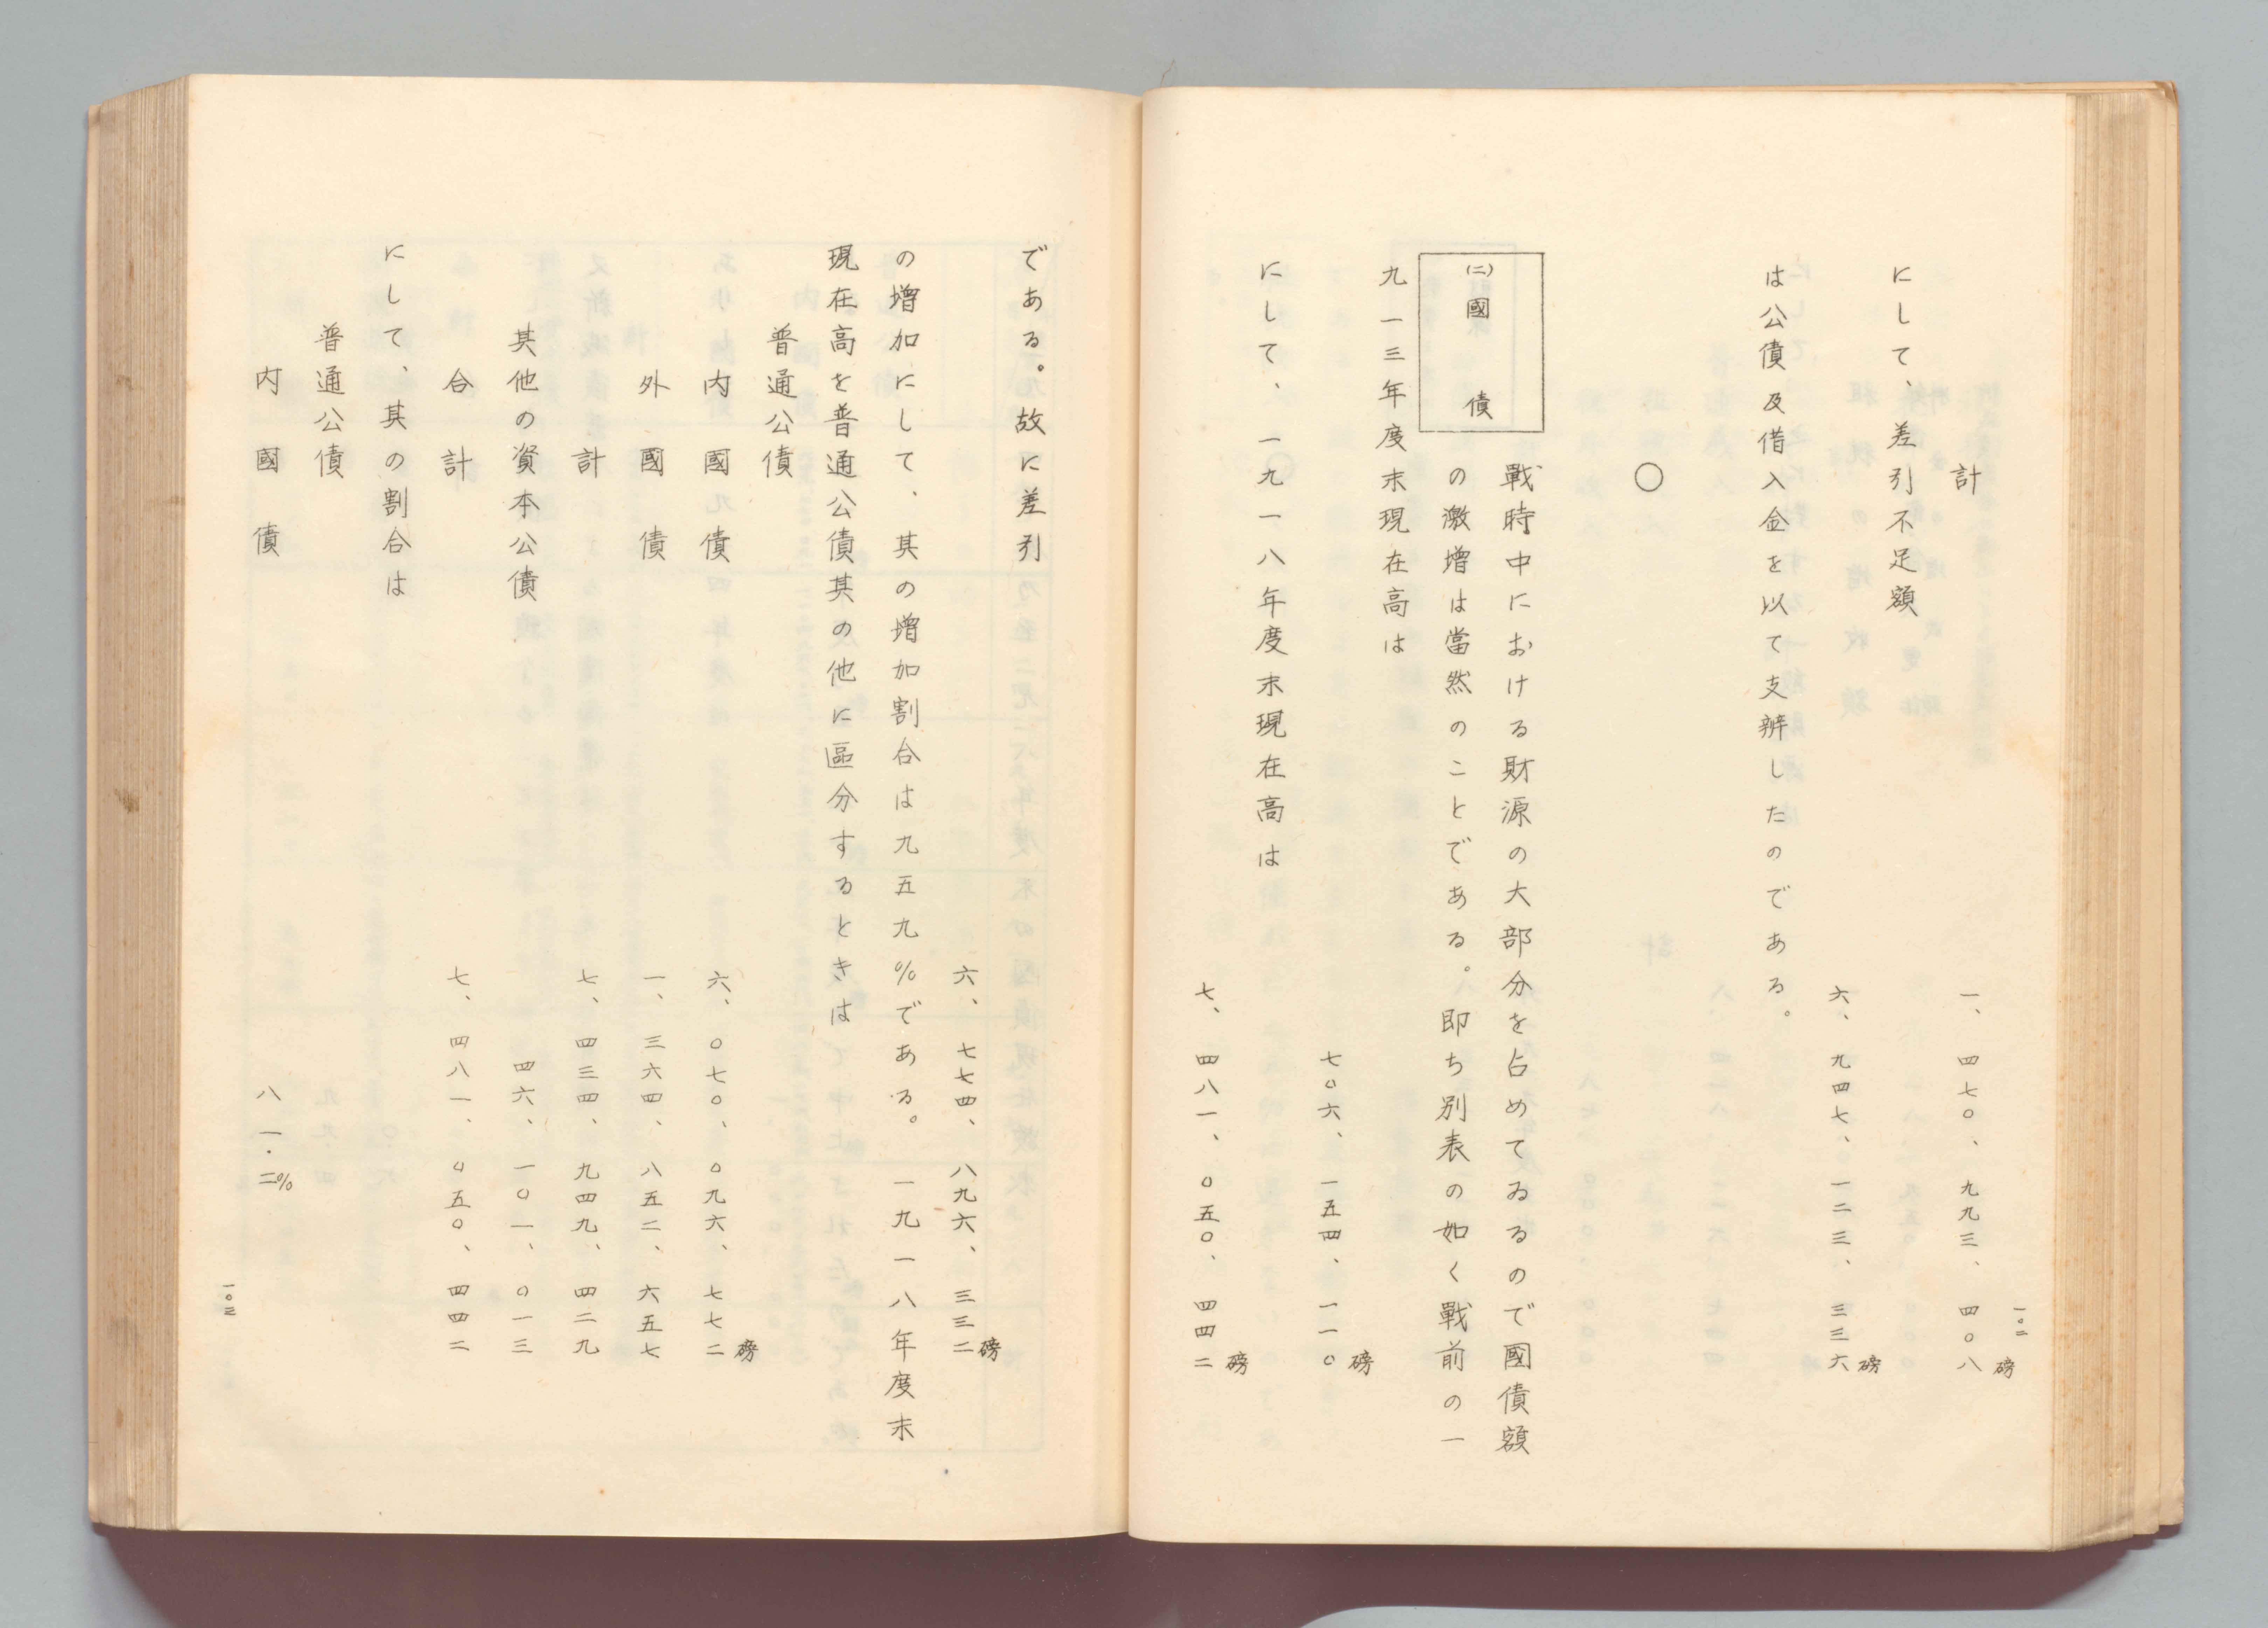 一〇二
計　一、四七〇、九九三、四〇八磅
にして、差引不足額
六、九四七、一二三、三三六磅
は公債及借入金を以て支辨したのである。
〇
(二)國債
戰時中における財源の大部分を占めてゐるので國債額
の激増は當然のことである。即ち別表の如く戰前の一
九一三年度末現在高は
七〇六、一五四、一一〇磅
にして、一九一八年度末現在高は
七、四八一、〇五〇、四四二磅
である。故に差引
六、七七四、八九六、三三二磅
の増加にして、其の増加割合は九五九％である。一九一八年度末
現在高を普通公債其の他に區分するときは
普通公債
内國債　六、〇七〇、〇九六、七七二磅
外國債　一、三六四、八五二、六五七
計　七、四三四、九四九、四二九
其他の資本公債　四六、一〇一、〇一三
合計　七、四八一、〇五〇、四四二
にして、其の割合は
普通公債
内國債　八一・二％
一〇三